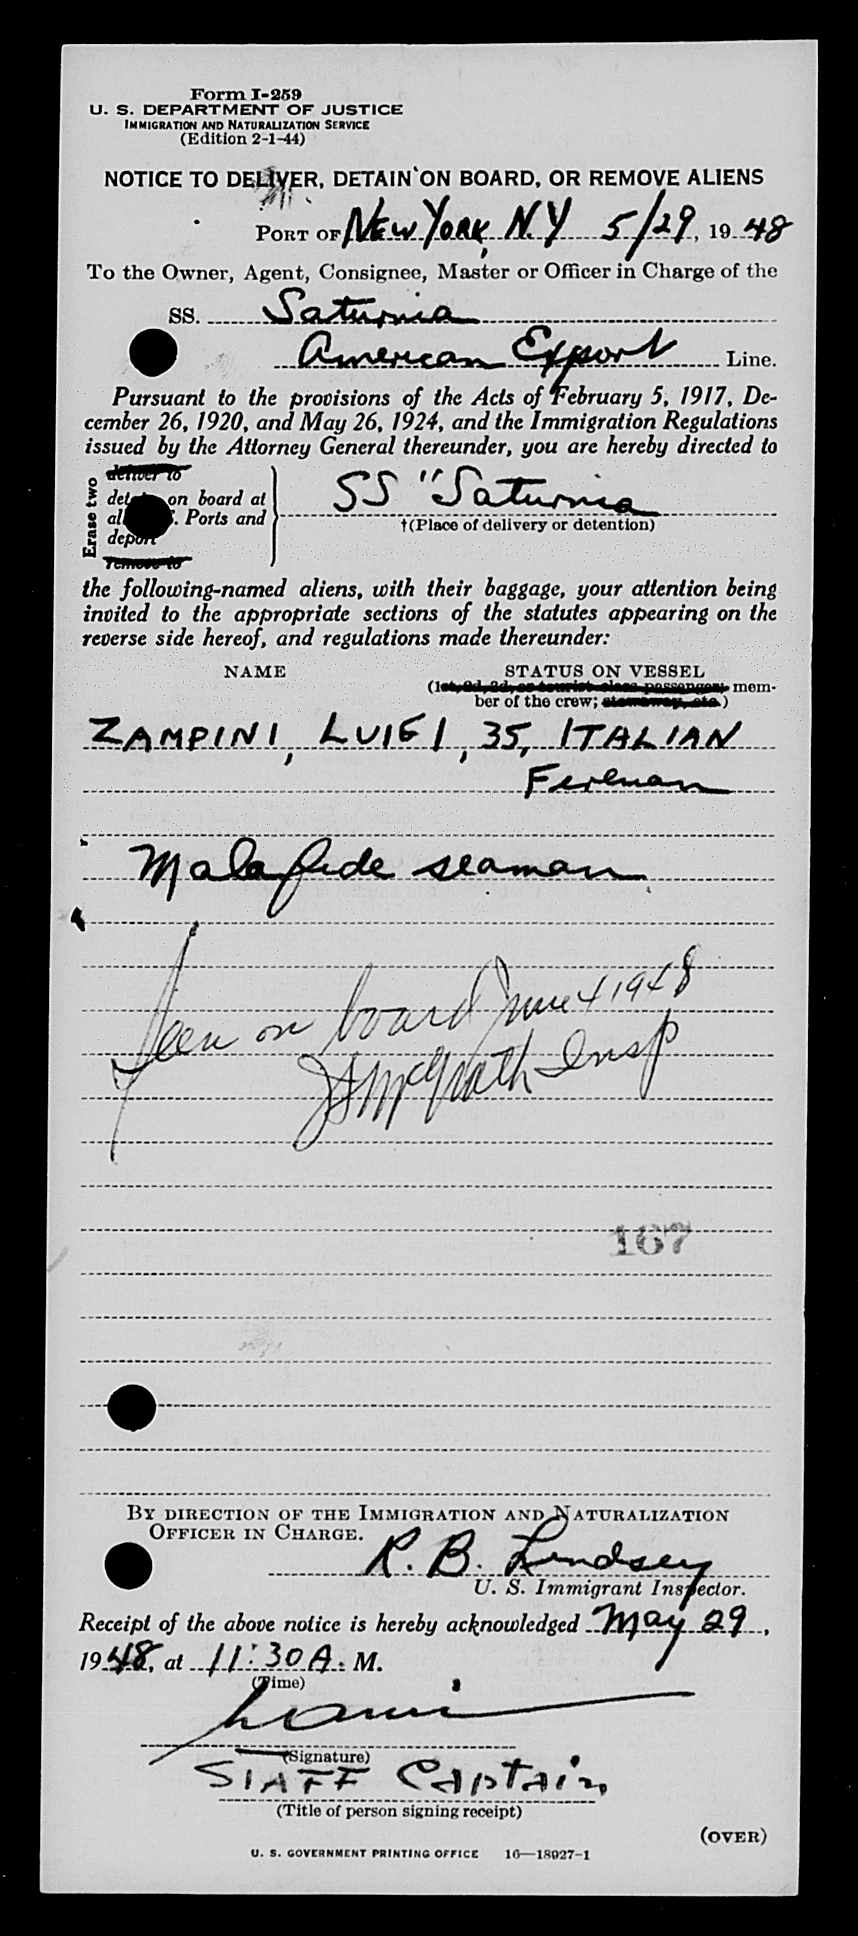 Form I-259
U. S. DEPARTMENT OF JUSTICE
IMMIGRATION AND NATURALIZATION SERVICE
(Edition 2-1-44)
NOTICE TO DELIVER, DETAIN ON BOARD, OR REMOVE ALIENS
PORT OF NEW YORK, N.Y 5/29, 1948
To the Owner, Agent, Consignee, Master or Officer in Charge of the
SS. Saturnia
American Export Line.
Pursuant to the provisions of the Acts of February 5, 1917, De-
cember 26, 1920, and May 26, 1924, and the Immigration Regulations
issued by the Attorney General thereunder, you are hereby directed to
Erase two
deliver to
on board at
Ports and
deport
remove to
SS "Saturnia
†(Place of delivery or detention)
the following-named aliens, with their baggage, your attention being
invited to the appropriate sections of the statutes appearing on the
reverse side hereof, and regulations made thereunder:
NAME STATUS ON VESSEL
(1st, 2d, 3d, or tourist class passenger; mem-
ber of the crew; stowaway, etc.)
ZAMPINI, LUIGI, 35, ITALIAN
Fireman
Malafide seaman
Seen on board June 4 1948
McGrath Insp
167
BY DIRECTION OF THE IMMIGRATION AND NATURALIZATION
OFFICER IN CHARGE.
R. B. Lindsey
U. S. Immigrant Inspector.
Receipt of the above notice is hereby acknowledged May 29,
1948, at 11:30 A. M.
(Time)
(Signature)
STAFF Captain
(Title of person signing receipt)
(OVER)
U. S. GOVERNMENT PRINTING OFFICE 16—18927-1